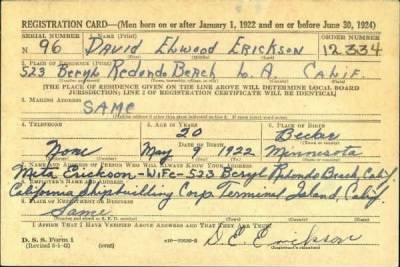 REGISTRATION CARD—(Men born on or after January 1, 1922 and on or before June 30, 1924)
SERIAL NUMBER 1. NAME (Print) ORDER NUMBER
N 96 DAVID ELWOOD ERICKSON 12334
2. PLACE OF RESIDENCE (Print)
523 Beryl Redondo Beach L. A. Calif.
[THE PLACE OF RESIDENCE GIVEN ON THE LINE ABOVE WILL DETERMINE LOCAL BOARD
JURISDICTION; LINE 2 OF REGISTRATION CERTIFICATE WILL BE IDENTICAL]
3. MAILING ADDRESS
SAME
4. TELEPHONE 5. AGE IN YEARS 6. PLACE OF BIRTH
20 Becker
DATE OF BIRTH
None May 9 1922 Minnesota
7. NAME AND ADDRESS OF PERSON WHO WILL ALWAYS KNOW YOUR ADDRESS
Erickson-Wife-523 Beryl Redondo Beach, Calif.
8. EMPLOYER'S NAME AND ADDRESS
California Shipbuilding Corp. Terminal Island, Calif.
9. PLACE OF EMPLOYMENT OR BUSINESS
Same
I AFFIRM THAT I HAVE VERIFIED ABOVE ANSWERS AND THAT THEY ARE TRUE.
D. S. S. Form 1
D.E. Erickson